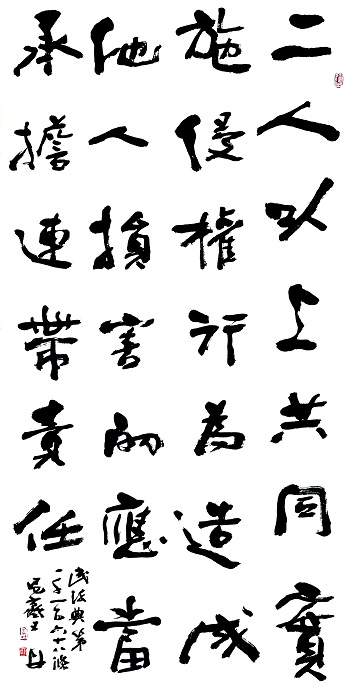 二人以上共同實
施侵權行為造成
他人損害的應當
承擔連帶責任
民法典第
一千一百六十八條